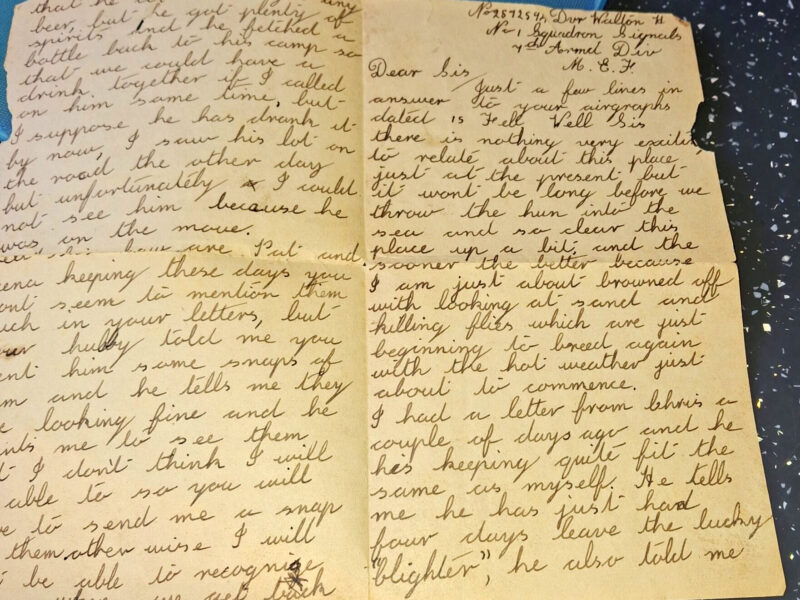 No 2572594 Dvr Walton H
No 1 Squadron Signals
7th Armd Div
M. E. F.
Dear Sis
Just a few lines in
answer to your airgraphs
dated 15 Feb Well Sis
there is nothing very exciting
to relate about this place
just at the present but
it wont be long before we
throw the hun into the
sea and so clear this
place up a bit, and the
sooner the better because
I am just about browned off
with looking at sand and
killing flies which are just
beginning to breed again
with the hot weather just
about to commence.
I had a letter from Chris a
couple of days ago and he
his keeping quite fit the
same as myself. He tells
me he has just had
four days leave the lucky
"blighter", he also told me
that he any
beer, but he got plenty of
spirits and he fetched a
bottle back to his camp so
that we could have a
drink together if I called
on him some time, but
I suppose he has drank it
by now, I saw his lot on
the road the other day
but unfortunately I could
not see him because he
was on the move.
how are Pat and
keeping these days you
dont seem to mention them
much in your letters, but
your hubby told me you
sent him some snaps of
them and he tells me they
are looking fine and he
wants me to see them
but I don't think I will
be able to so you will
have to send me a snap
of them other wise I will
not be able to recognise
get back